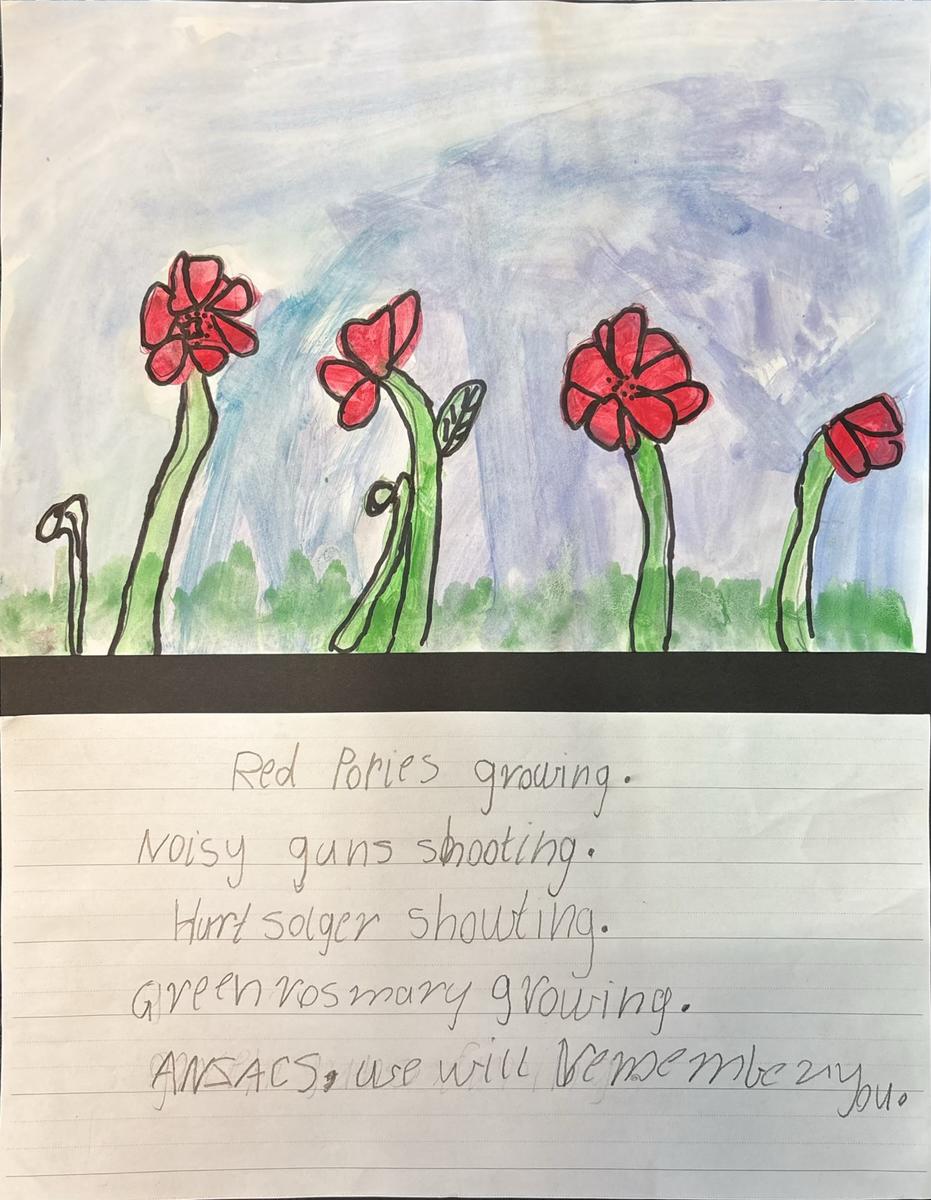 Red Popies growing.
Noisy guns shooting.
Hurt solger shouting.
Green rosmary growing.
ANSACS, we will remember you.